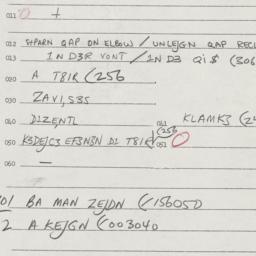 011 O +
012 SHPARN QAP ON ELBOW / UNLEJGN QAP RECL
013 1N D3R VONT / 1N D3 Qi$ (306
020 A T81R (256
030 ZAVI,S3S
040 D1ZENTL 041 KLAMK3 (24
050 K3DEJC3 EF3N3N D1 T81R (256 051 O
060 —
01 BA MAN ZEJDN (/156050
2 A KEJGN (/003040